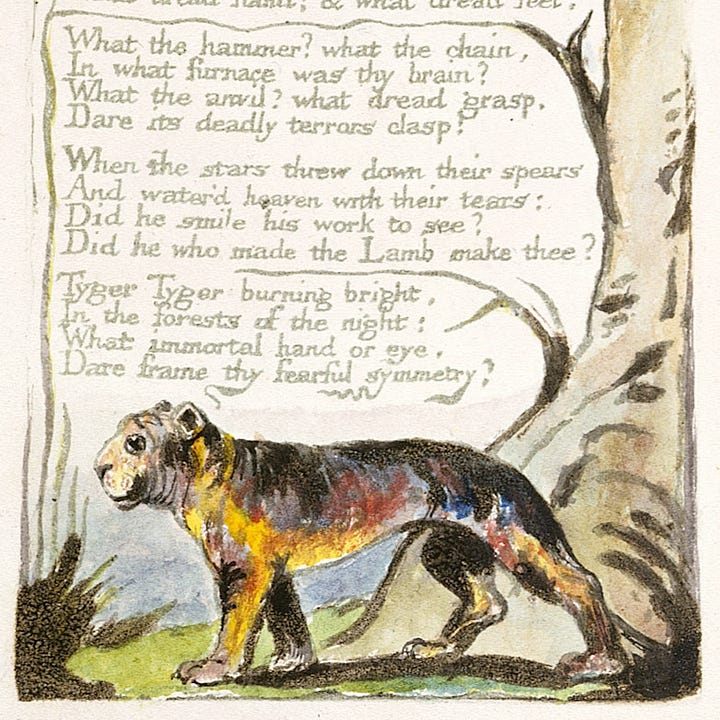 dread hand? & what dread feet?
What the hammer? what the chain,
In what furnace was thy brain?
What the anvil? what dread grasp.
Dare its deadly terrors clasp!
When the stars threw down their spears
And water'd heaven with their tears:
Did he smile his work to see?
Did he who made the Lamb make thee?
Tyger Tyger burning bright,
In the forests of the night:
What immortal hand or eye,
Dare frame thy fearful symmetry?